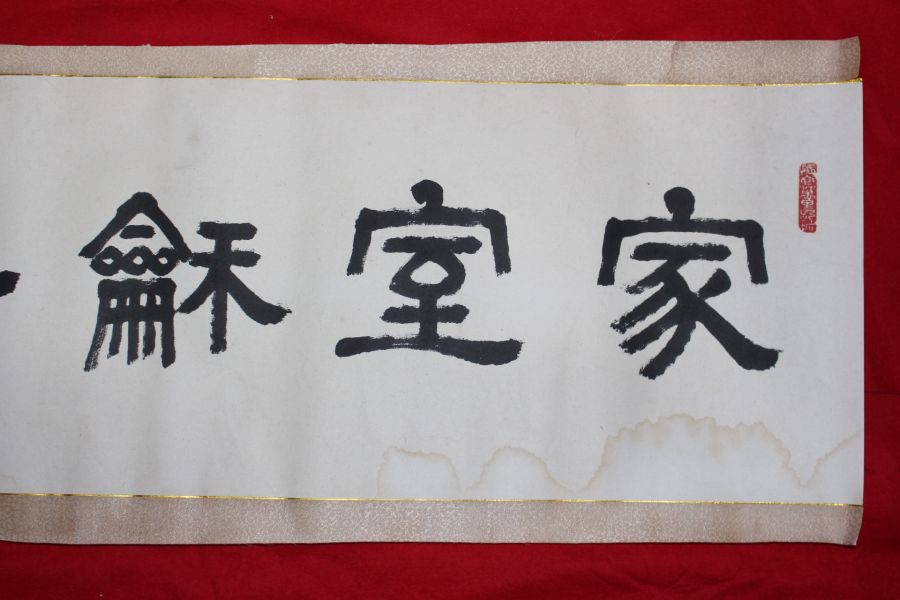 家室龢